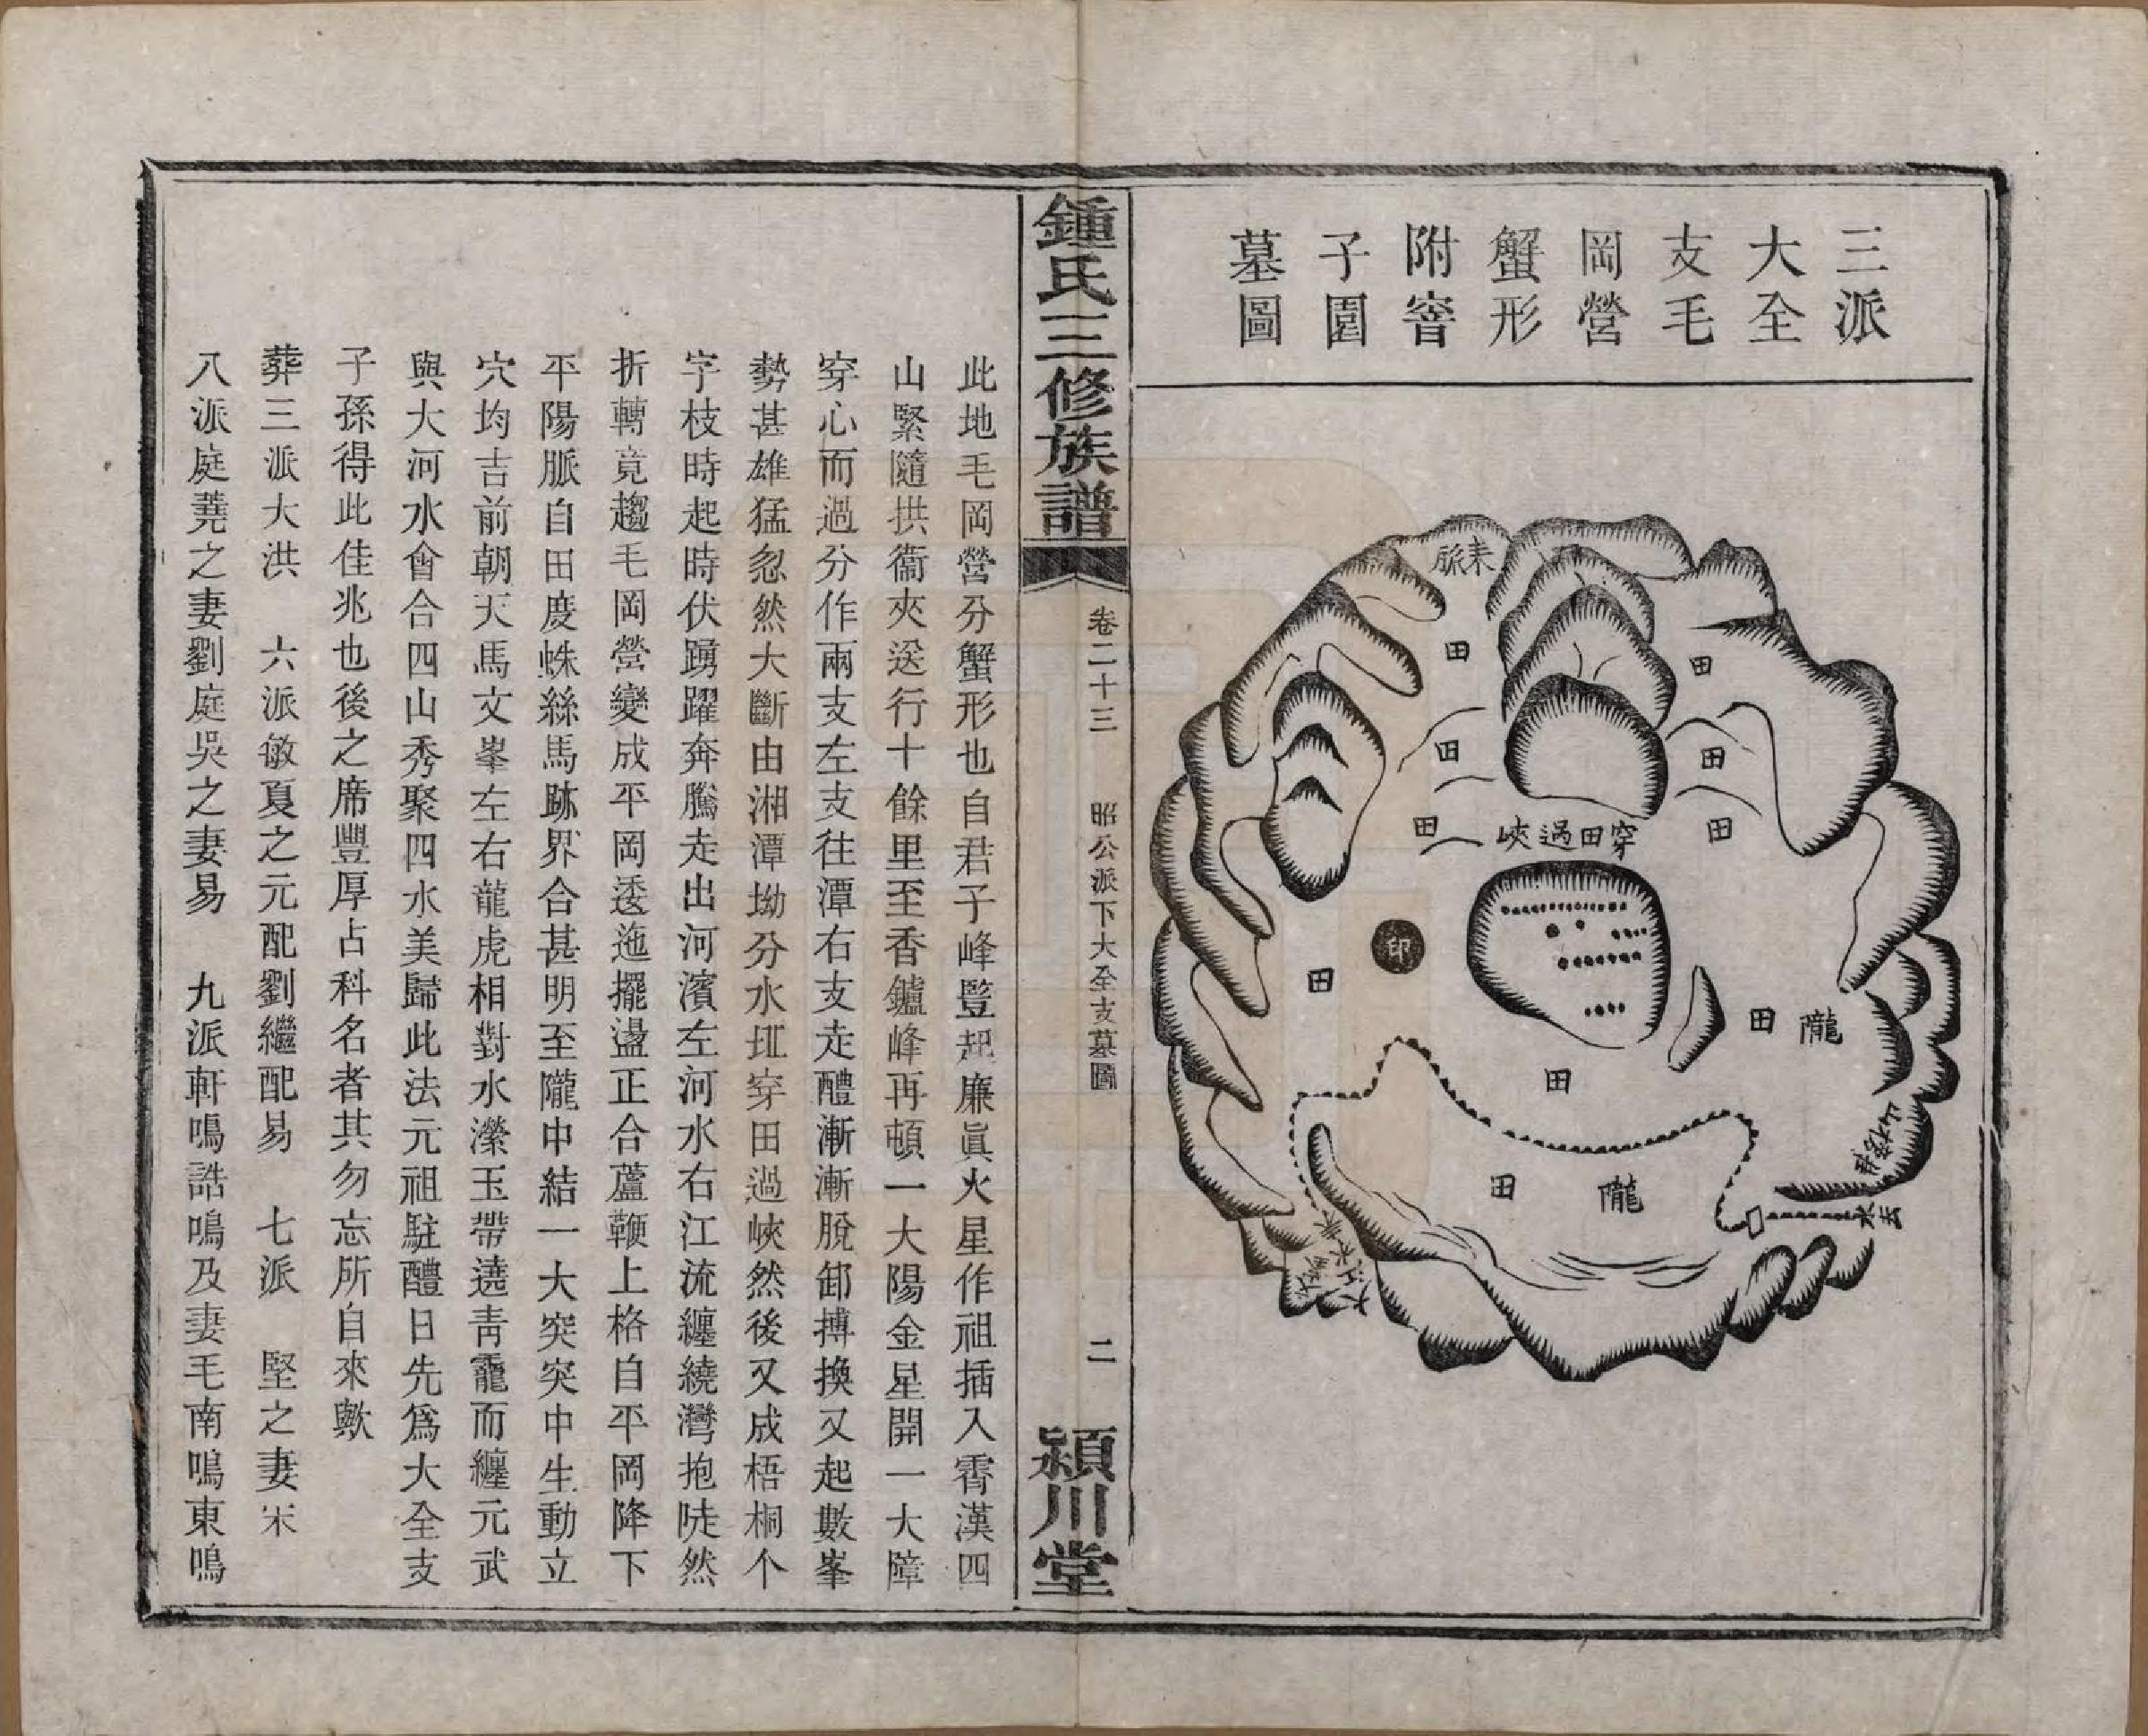 三派
大全
支毛
岡營
蟹形
附窨
子園
墓圖
來脈
田
田
田
田
田
田
穿田過峽
印
田
田
隴
田
田
隴
去水
鍾氏三修族譜
卷二十三
昭公派下大全支墓圖
二
潁川堂
此地毛岡營分蟹形也自君子峰豎起廉眞火星作祖插入霄漢四
山緊隨拱衞夾送行十餘里至香鑪峰再頓一大陽金星開一大障
穿心而過分作兩支左支往潭右支走醴漸漸脫卸摶換又起數峯
勢甚雄猛忽然大斷由湘潭坳分水坵穿田過峽然後又成梧桐个
字枝時起時伏踴躍奔騰走出河濱左河水右江流纏繞灣抱陡然
折轉竟趨毛岡營變成平岡逶迤擺盪正合蘆鞭上格自平岡降下
平陽脈自田度蛛絲馬跡界合甚明至隴中結一大突突中生動立
穴均吉前朝天馬文峯左右龍虎相對水瀠玉帶遶靑龍而纏元武
與大河水會合四山秀聚四水美歸此法元祖駐醴日先爲大全支
子孫得此佳兆也後之席豐厚占科名者其勿忘所自來歟
葬三派大洪 六派敏夏之元配劉繼配易 七派 堅之妻宋
八派庭蕘之妻劉庭吳之妻易 九派軒鳴誥鳴及妻毛南鳴東鳴